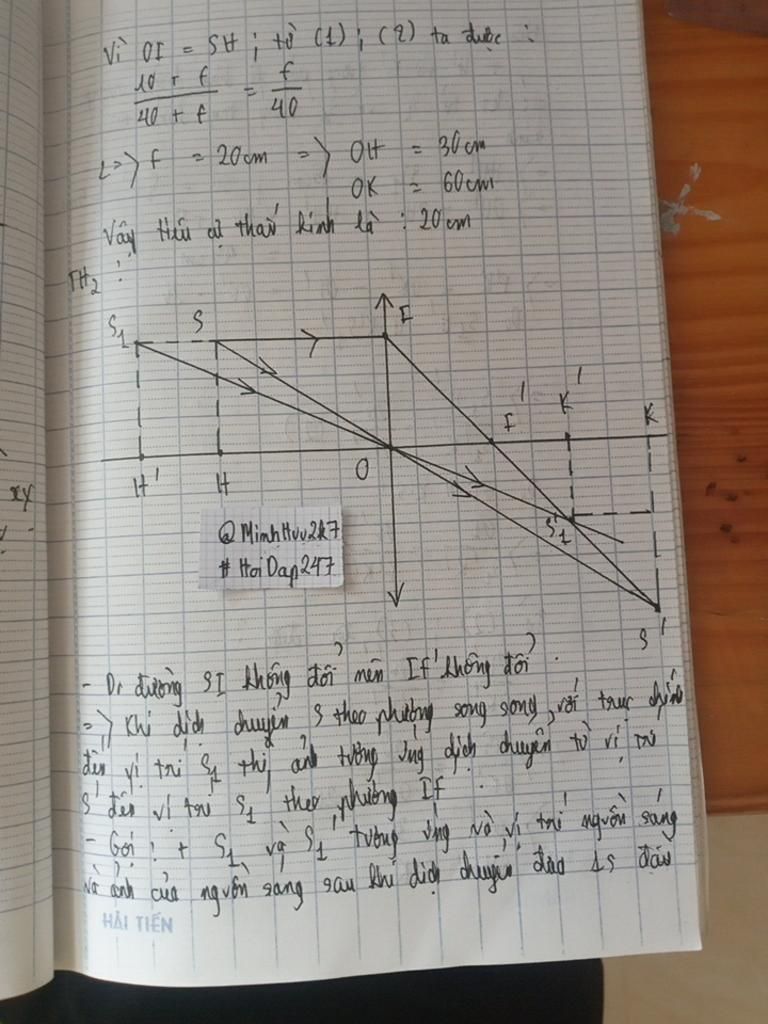 Vì OI = SH ; từ (1) ; (2) ta được :
10 + f / 40 + f = f / 40
<=> f = 20cm => OH = 30cm
OK = 60cm
Vậy tiêu cự thấu kính là : 20cm
TH2 :
S1 S I
F' K' K
O
H' H
S1'
@MinhHuu2k7
#HoiDap247
S'
- Do đường SI không đổi nên IF' không đổi.
=> Khi dịch chuyển S theo phương song song với trục chính
đến vị trí S1 thì ảnh tương ứng dịch chuyển từ vị trí
S' đến vị trí S1' theo phương IF'.
- Gọi : + S1 và S1' tương ứng và vị trí nguồn sáng
và ảnh của nguồn sáng sau khi dịch chuyển được 1s đầu
HẢI TIẾN
xy